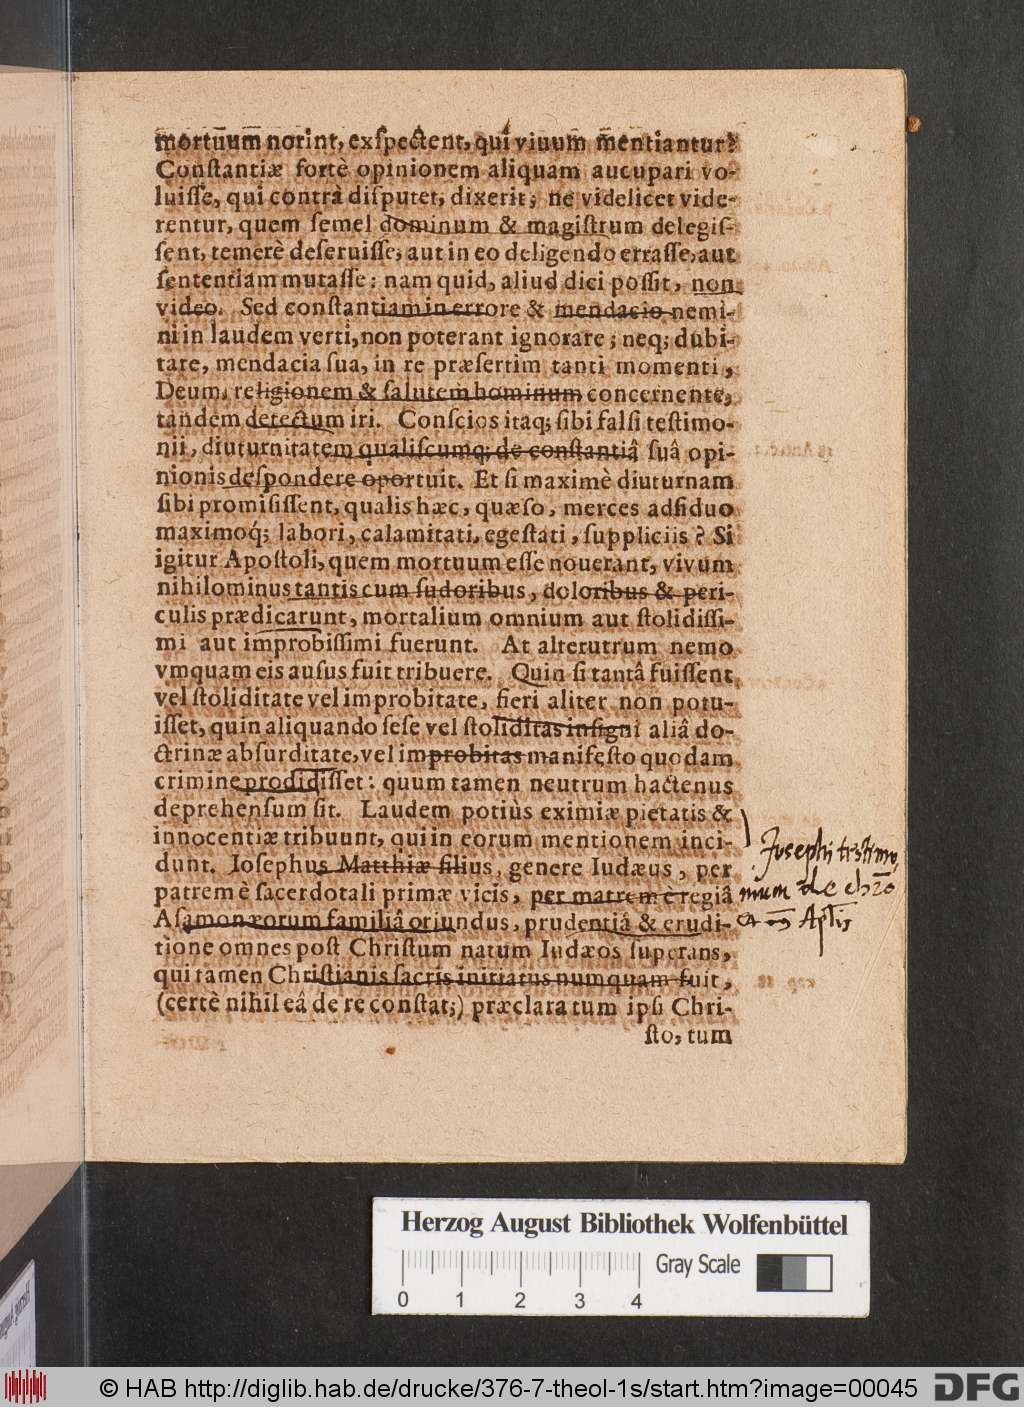 mortuum norint, exſpectent, qui viuum mentiantur?
Conſtantiæ fortè opinionem aliquam aucupari vo-
luiſſe, qui contrà diſputet, dixerit; ne videlicet vide-
rentur, quem ſemel dominum & magiſtrum delegiſ-
ſent, temerè deſeruiſſe, aut in eo deligendo erraſſe, aut
ſententiam mutaſſe: nam quid, aliud dici poſſit, non
video. Sed conſtantiam in errore & mendacio nemi-
ni in laudem verti, non poterant ignorare; neq; dubi-
tare, mendacia ſua, in re præſertim tanti momenti,
Deum, religionem & ſalutem hominum concernente,
tandem detectum iri. Conſcios itaq; ſibi falſi teſtimo-
nii, diuturnitatem qualiſcumq; de conſtantiâ ſuâ opi-
nionis deſpondere oportuit. Et ſi maximè diuturnam
ſibi promiſiſſent, qualis hæc, quæſo, merces adſiduo
maximoq́; labori, calamitati, egeſtati, ſuppliciis? Si
igitur Apoſtoli, quem mortuum eſſe nouerant, vivum
nihilominus tantis cum ſudoribus, doloribus & peri-
culis prædicarunt, mortalium omnium aut ſtolidiſſi-
mi aut improbiſſimi fuerunt. At alterutrum nemo
vmquam eis auſus fuit tribuere. Quin ſi tantâ fuiſſent
vel ſtoliditate vel improbitate, fieri aliter non potu-
iſſet, quin aliquando ſeſe vel ſtoliditas inſigni aliâ do-
ctrinæ abſurditate, vel improbitas manifeſto quodam
crimine prodidiſſet: quum tamen neutrum hactenus
deprehenſum ſit. Laudem potiùs eximiæ pietatis &
innocentiæ tribuunt, qui in eorum mentionem inci-
dunt. Ioſephus Matthiæ filius, genere Iudæus, per
patrem è ſacerdotali primæ vicis, per matrem è regiâ
Aſamonæorum familiâ oriundus, prudentiâ & erudi-
tione omnes poſt Chriſtum natum Iudæos ſuperans,
qui tamen Chriſtianis ſacris initiatus numquam fuit,
(certè nihil eâ de re conſtat;) præclara tum ipſi Chri-
ſto, tum
Josephi testimo,
nium de chr̄o
et Aplīs
Herzog August Bibliothek Wolfenbüttel
Gray Scale
0 1 2 3 4
© HAB http://diglib.hab.de/drucke/376-7-theol-1s/start.htm?image=00045
DFG